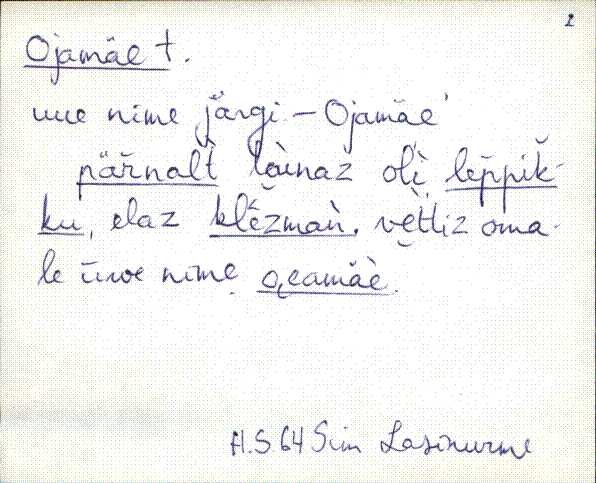 2
Ojamäe t.
uue nime järgi – Ojamäe
pär̆nalt̀ läinaz oĺì lep̆pik̆-
ku, elaz klĕ́zmaǹ. vet̀tiz oma-
le ūwe nime o̬eamäè.
H.S. 64 Sim Lasinurme